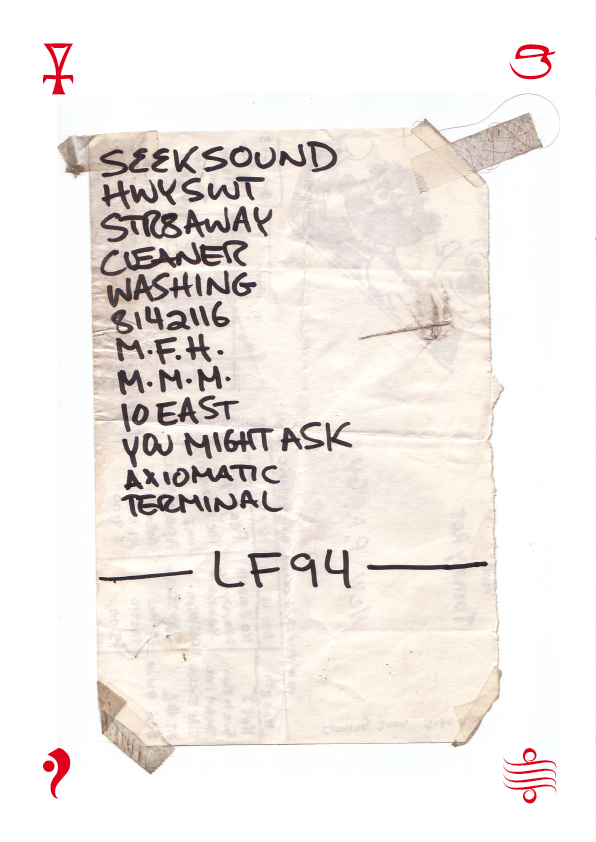 SEEKSOUND
HWYSWT
STR8AWAY
CLEANER
WASHING
8142116
M.F.H.
M.M.M.
10 EAST
YOU MIGHT ASK
AXIOMATIC
TERMINAL
LF94